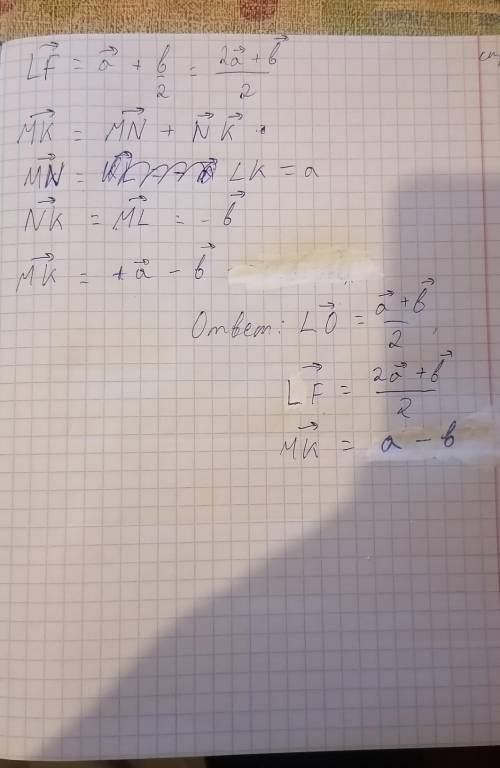 LF⃗ = a⃗ + b/2 = (2a⃗ + b⃗)/2
MK⃗ = MN⃗ + NK⃗
MN⃗ = LK = a
NK⃗ = ML⃗ = -b⃗
MK⃗ = +a⃗ - b⃗
Ответ: LO⃗ = (a⃗ + b⃗)/2,
LF⃗ = (2a⃗ + b⃗)/2
MK⃗ = a - b